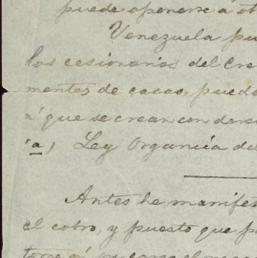 puede oponerse á ot
Venezuela pu
los cesionarios del Cre
mentos de cacao, pueda
á que se crean con dere
'a) Ley Organcia de
Antes he manifes
el cobro, y puesto que p